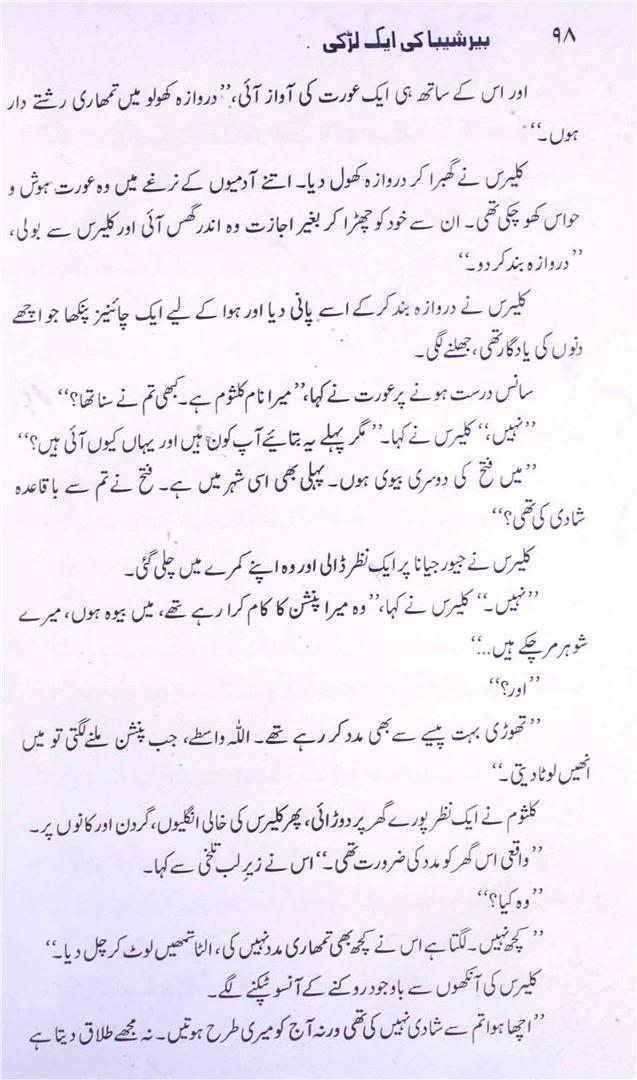 ۹۸ بیر شیبا کی ایک لڑکی
اور اس کے ساتھ ہی ایک عورت کی آواز آئی، ”دروازہ کھولو میں تمھاری رشتے دار
ہوں۔“
کلیرس نے گھبرا کر دروازہ کھول دیا۔ اتنے آدمیوں کے نرغے میں وہ عورت ہوش و
حواس کھو چکی تھی۔ ان سے خود کو چھڑا کر بغیر اجازت وہ اندر گھس آئی اور کلیرس سے بولی،
”دروازہ بند کر دو۔“
کلیرس نے دروازہ بند کر کے اسے پانی دیا اور ہوا کے لیے ایک چائنیز پنکھا جو اچھے
دنوں کی یادگار تھی، جھلنے لگی۔
سانس درست ہونے پر عورت نے کہا، ”میرا نام کلثوم ہے۔ کبھی تم نے سنا تھا؟“
”نہیں،“ کلیرس نے کہا۔ ”مگر پہلے یہ بتائیے آپ کون ہیں اور یہاں کیوں آئی ہیں؟“
”میں فتح کی دوسری بیوی ہوں۔ پہلی بھی اسی شہر میں ہے۔ فتح نے تم سے باقاعدہ
شادی کی تھی؟“
کلیرس نے جیور جیانا پر ایک نظر ڈالی اور وہ اپنے کمرے میں چلی گئی۔
”نہیں۔“ کلیرس نے کہا، ”وہ میرا پنشن کا کام کرا رہے تھے، میں بیوہ ہوں، میرے
شوہر مر چکے ہیں...“
”اور؟“
”تھوڑی بہت پیسے سے بھی مدد کر رہے تھے۔ اللہ واسطے، جب پنشن ملنے لگتی تو میں
انھیں لوٹا دیتی۔“
کلثوم نے ایک نظر پورے گھر پر دوڑائی، پھر کلیرس کی خالی انگلیوں، گردن اور کانوں پر۔
”واقعی اس گھر کو مدد کی ضرورت تھی۔“ اس نے زیر لب تلخی سے کہا۔
”وہ کیا؟“
”کچھ نہیں۔ لگتا ہے اس نے کچھ بھی تمھاری مدد نہیں کی، الٹا تمھیں لوٹ کر چل دیا۔“
کلیرس کی آنکھوں سے باوجود روکنے کے آنسو ٹپکنے لگے۔
”اچھا ہوا تم سے شادی نہیں کی تھی ورنہ آج کو میری طرح ہوتیں۔ نہ مجھے طلاق دیتا ہے